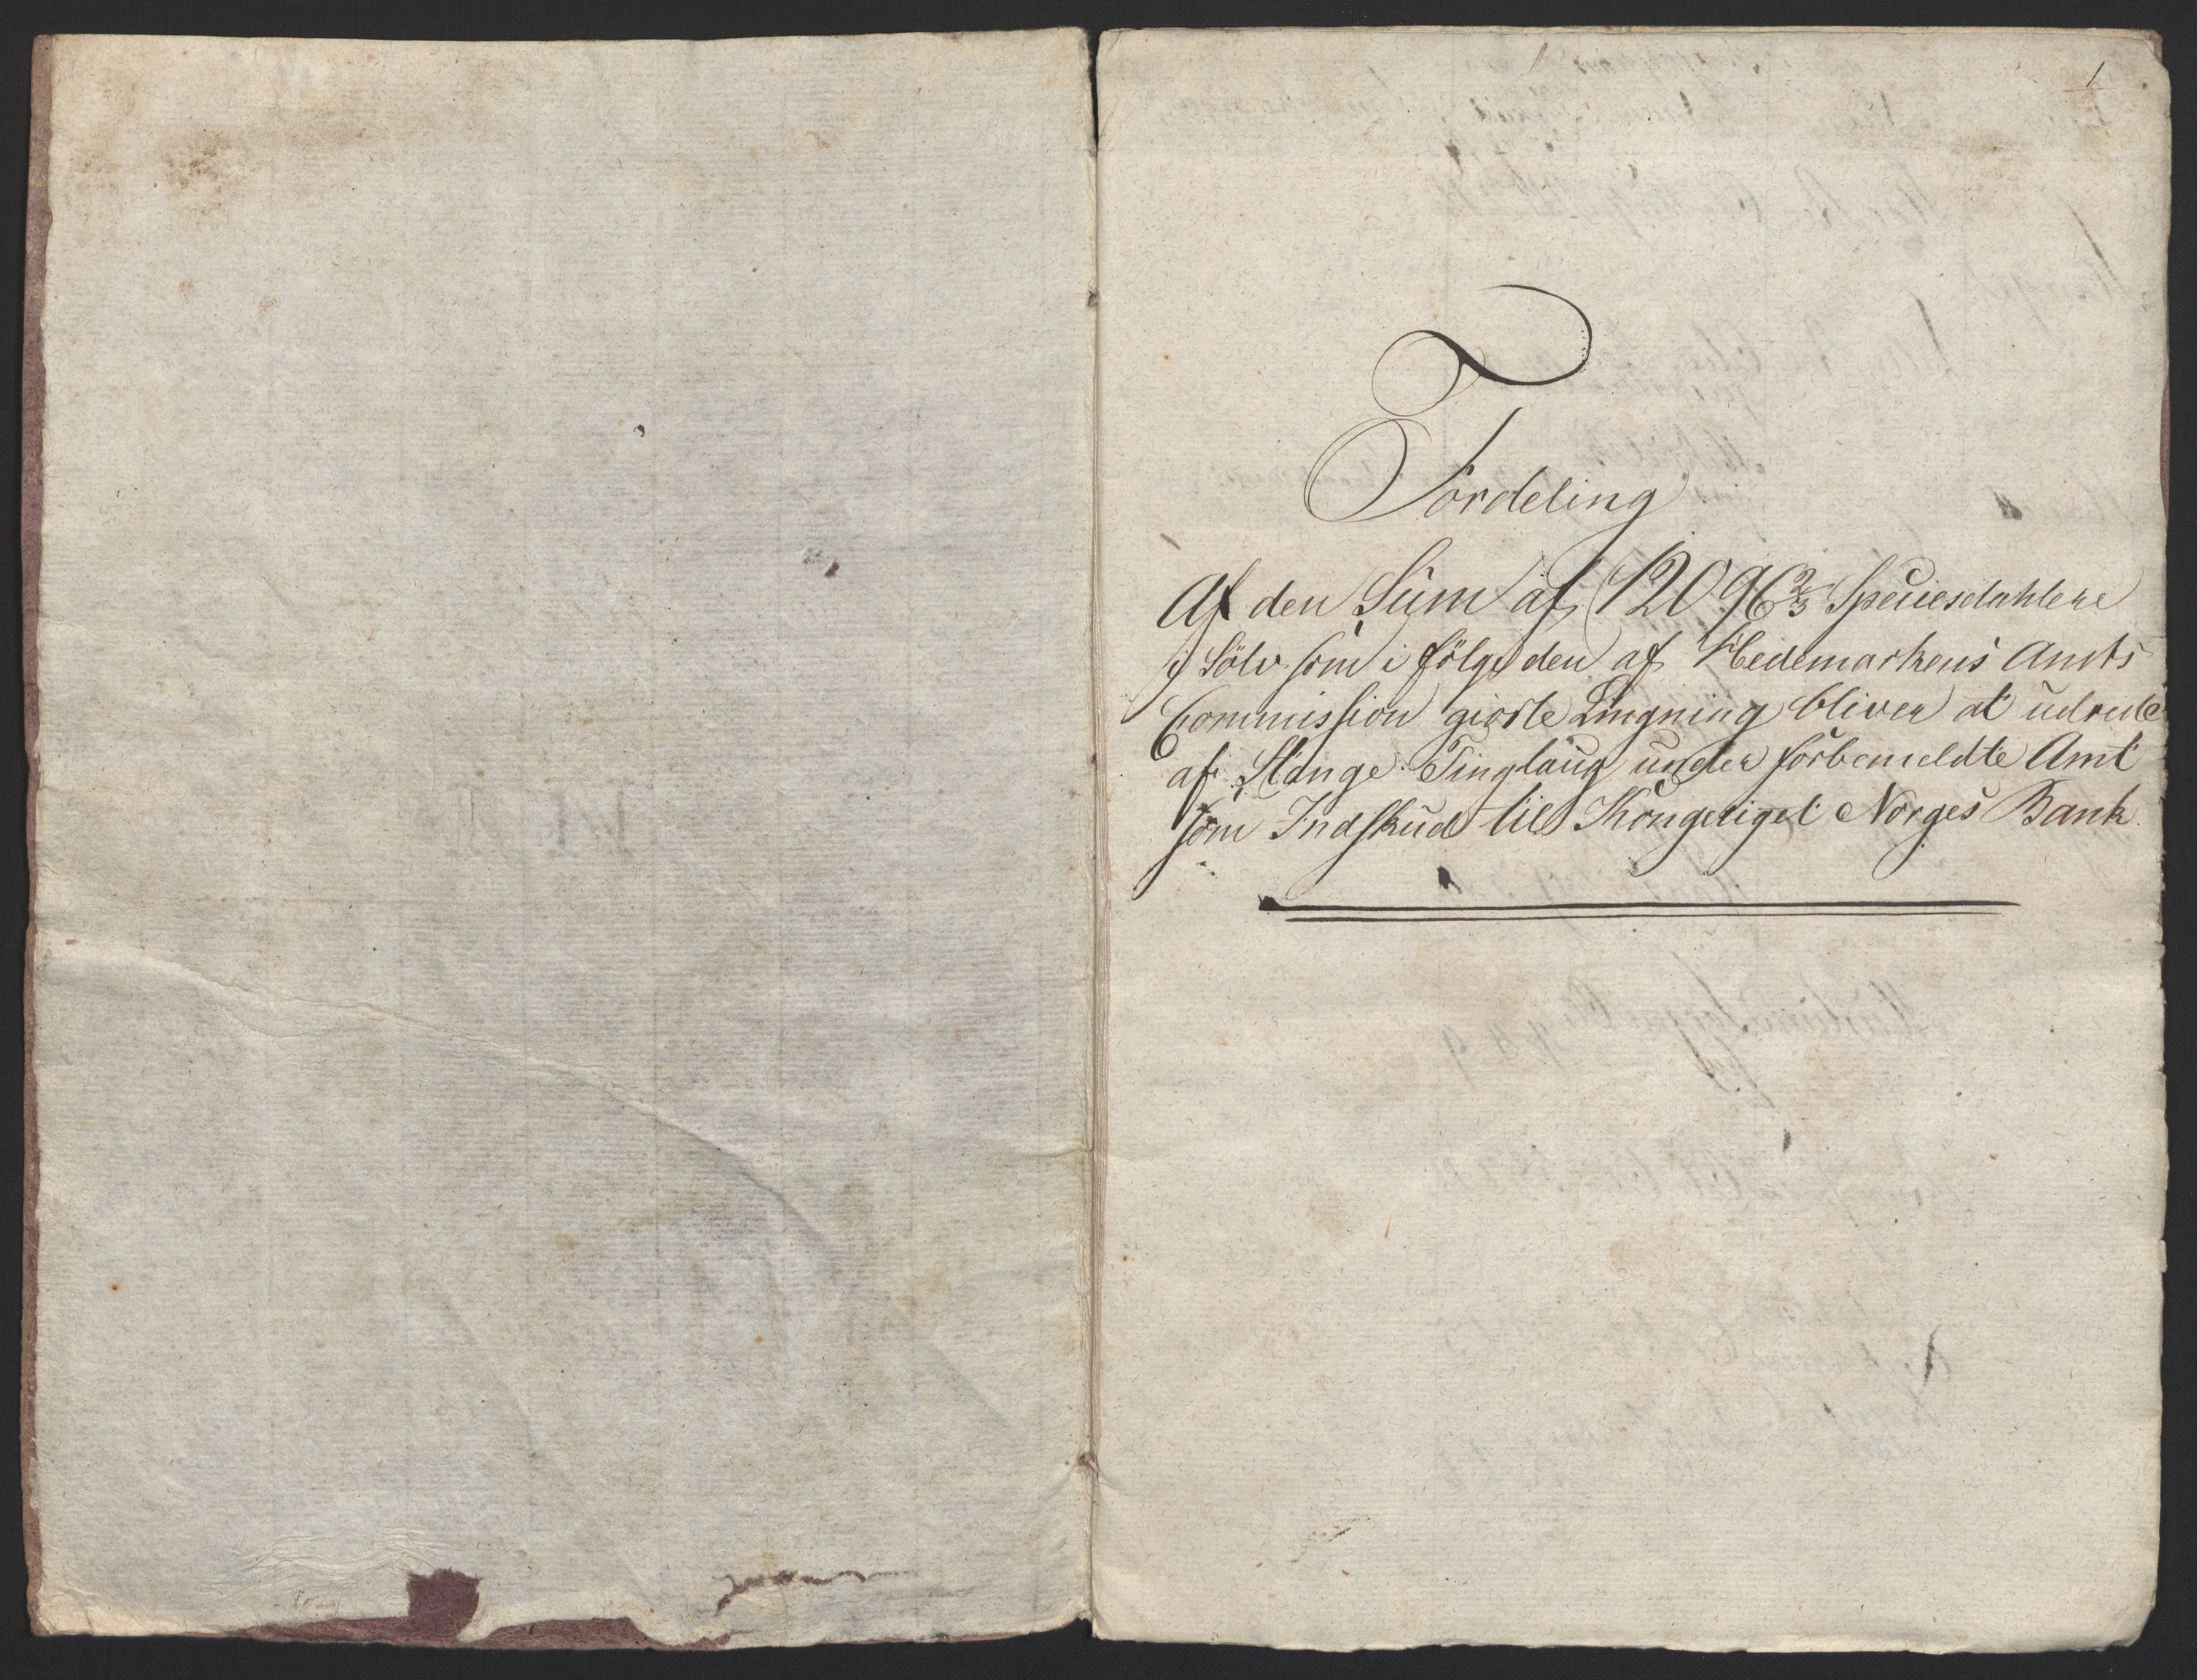 1
Fordeling
Af den Sum af 12096 2/3 Speciesdahlere
i Sölv som i fölge den af Hedemarkens Amts
Commission giorte Ligning bliver at udrede
af Stange Tinglaug under forbemeldte Amt
som Indskud til Kongeriget Norges Bank.